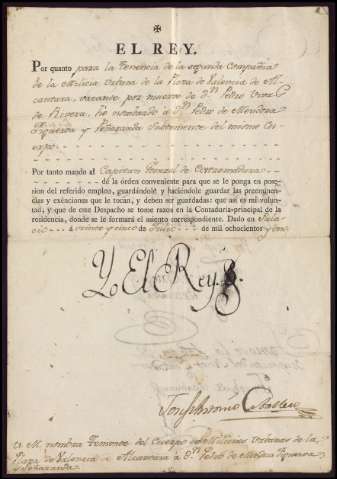 EL REY.
Por quanto para la Tenencia de la segunda Compañia
de la Milicia Urbana de la Plaza de Valencia de Al-
cantara, vacante por muerte de Dn. Pedro
de Rivera, he nombrado a Dn. Pedro de Mendoza
Figueroa y Peñaranda Subteniente del mismo Cu-
erpo.
Por tanto mando al Capitan General de Extremadura
dé la órden conveniente para que se le ponga en pose-
sion del referido empleo, guardándole y haciéndole guardar las preeminen-
cias y exênciones que le tocan, y deben ser guardadas: que así es mi volun-
tad, y que de este Despacho se tome razon en la Contaduría-principal de la
residencia, donde se le formará el asiento correspondiente. Dado en Pala-
cio á veinte y cinco de Julio de mil ochocientos y
Yo El Rey.
Josef Antonio Caballero
V. M. nombra Teniente del Cuerpo de Milicias Urbanas de la
Plaza de Valencia de Alcantara á Dn. Pedro de Mendoza Figueroa
y Peñaranda